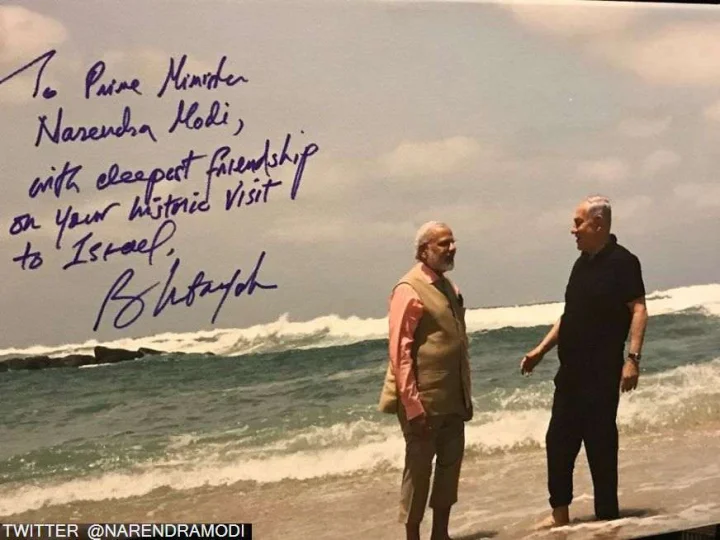 To Prime Minister
Narendra Modi,
with deepest friendship
on your historic visit
to Israel,
TWITTER @NARENDRAMODI